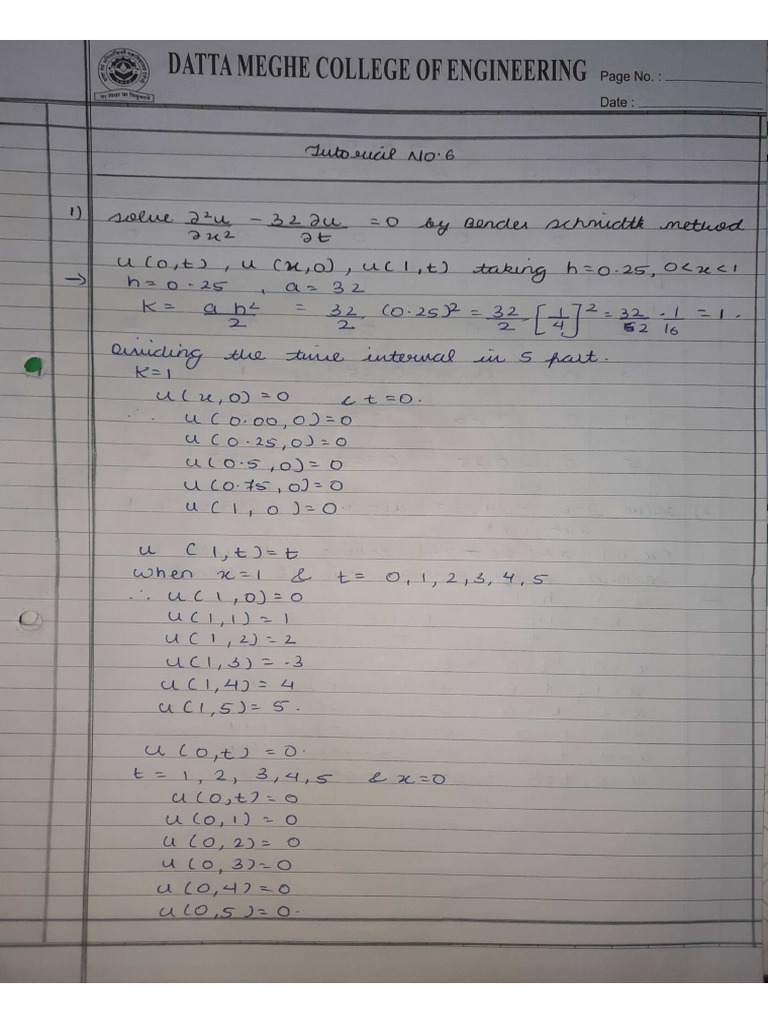 DATTA MEGHE COLLEGE OF ENGINEERING
Page No. :
Date :
Tutorial No. 6
1) solve ∂²u/∂x² - 32 ∂u/∂t = 0 by Bender schmidth method
u(0,t), u(x,0), u(1,t) taking h=0.25, 0<x<1
→ h=0.25, a=32
K = a h²/2 = 32/2 (0.25)² = 32/2 [1/4]² = 32/2 · 1/16 = 1.
Dividing the time interval in 5 part.
K=1
u(x,0)=0 & t=0.
∴ u(0.00,0)=0
u(0.25,0)=0
u(0.5,0)=0
u(0.75,0)=0
u(1,0)=0.
u(1,t)=t
when x=1 & t= 0,1,2,3,4,5
∴ u(1,0)=0
u(1,1)=1
u(1,2)=2
u(1,3)=3
u(1,4)=4
u(1,5)=5.
u(0,t)=0.
t=1, 2, 3, 4, 5 & x=0
u(0,t)=0
u(0,1)=0
u(0,2)=0
u(0,3)=0
u(0,4)=0
u(0,5)=0.